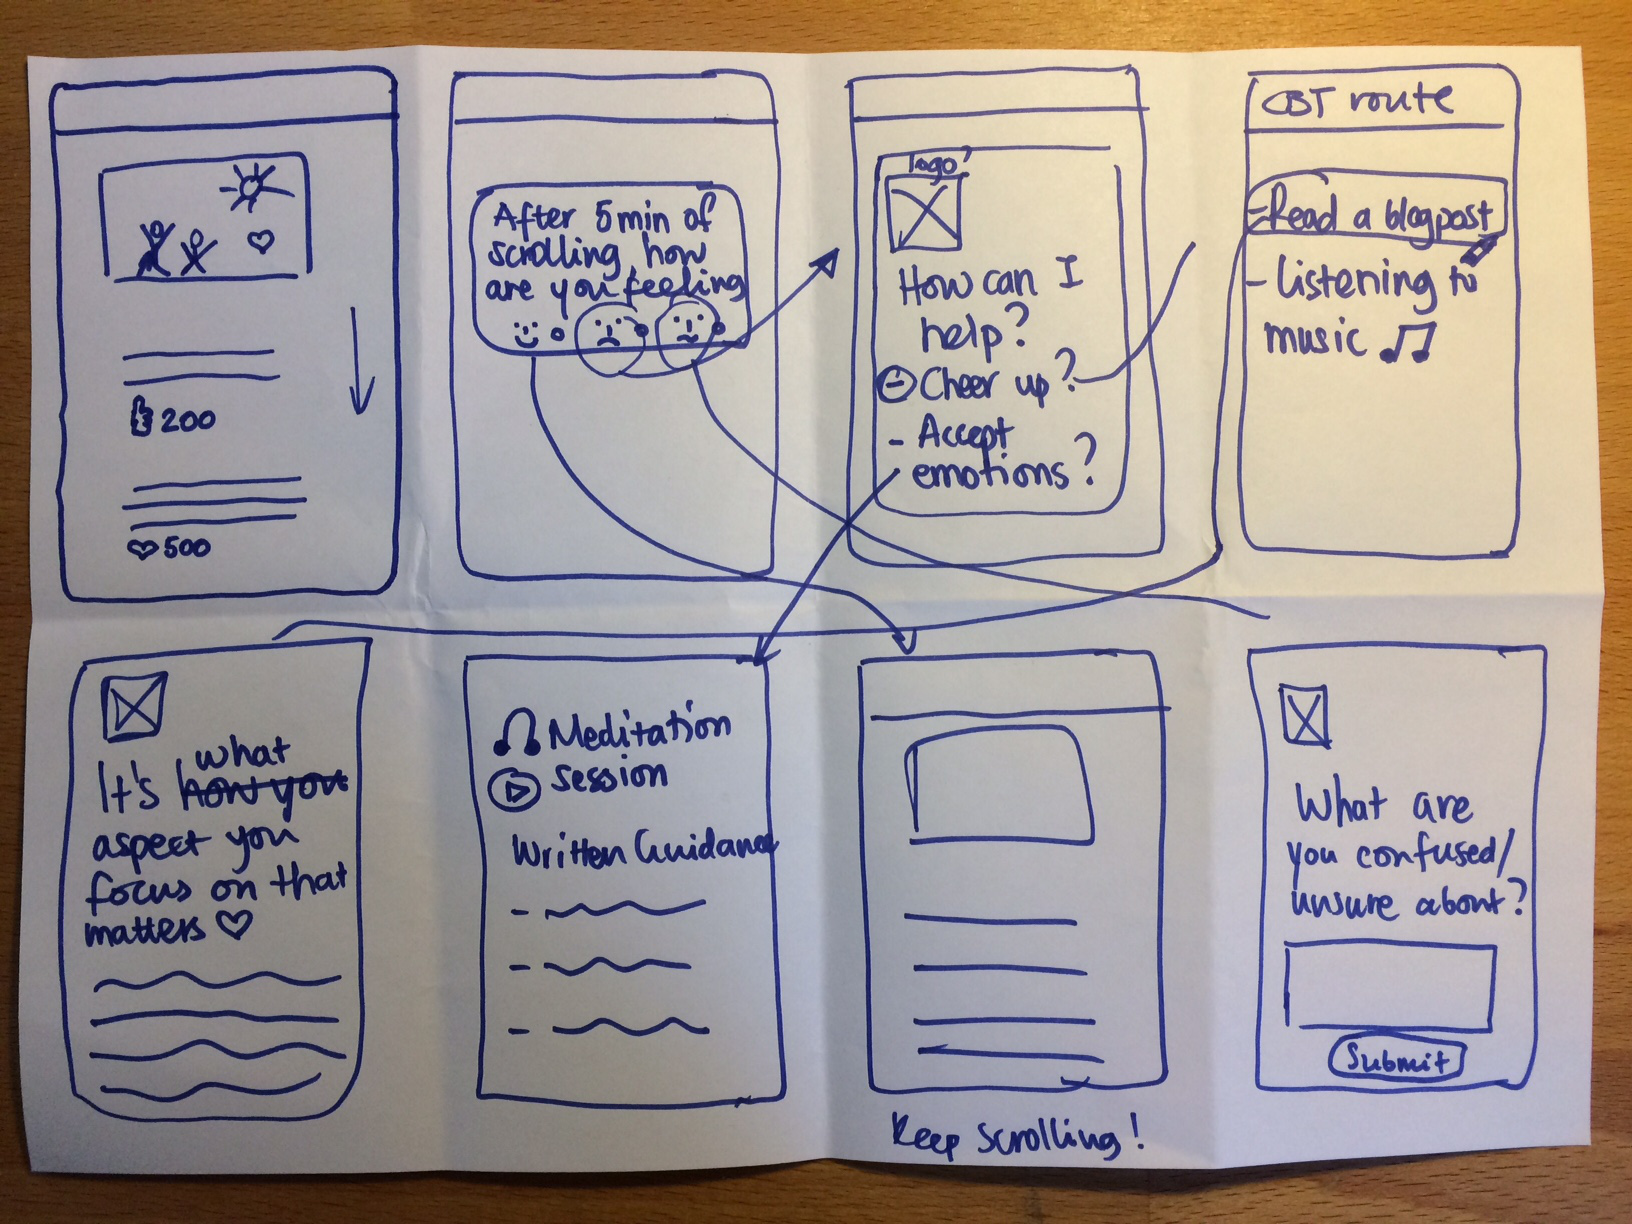 200
500
After 5min of
scrolling, how
are you feeling
logo
How can I
help?
Cheer up?
- Accept
emotions?
CBT route
- Read a blogpost
- listening to
music
what
It's how you
aspect you
focus on that
matters
Meditation
session
Written Guidance
Keep scrolling!
What are
you confused/
unsure about?
Submit